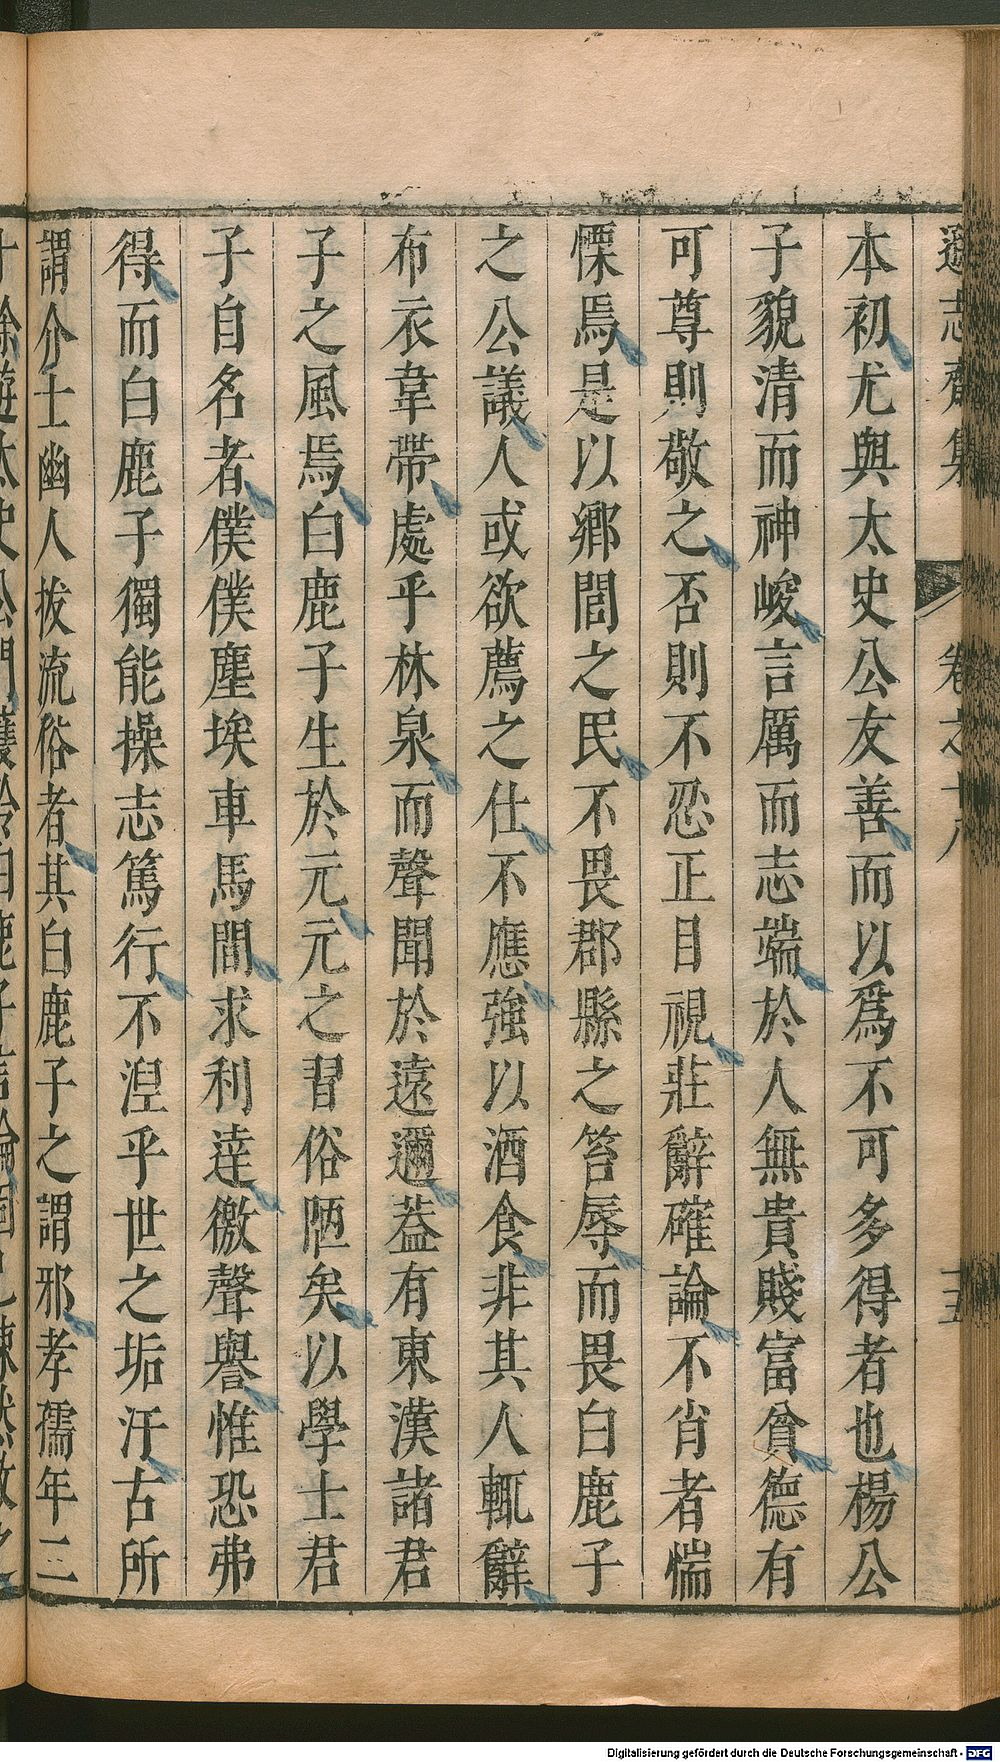 遜志齋集 卷之十八 十五
本初尤與太史公友善而以爲不可多得者也楊公
子貌清而神峻言厲而志端於人無貴賤富貧德有
可尊則敬之否則不忍正目視莊辭確論不肖者惴
慄焉是以鄉閭之民不畏郡縣之笞辱而畏白鹿子
之公議人或欲薦之仕不應強以酒食非其人輒辭
布衣韋帶處乎林泉而聲聞於遠邇葢有東漢諸君
子之風焉白鹿子生於元元之習俗陋矣以學士君
子自名者僕僕塵埃車馬間求利達徼聲譽惟恐弗
得而白鹿子獨能操志篤行不湼乎世之垢汙古所
謂介士幽人拔流俗者其白鹿子之謂邪孝孺年二
十餘遊太史公門
Digitalisierung gefördert durch die Deutsche Forschungsgemeinschaft - DFG